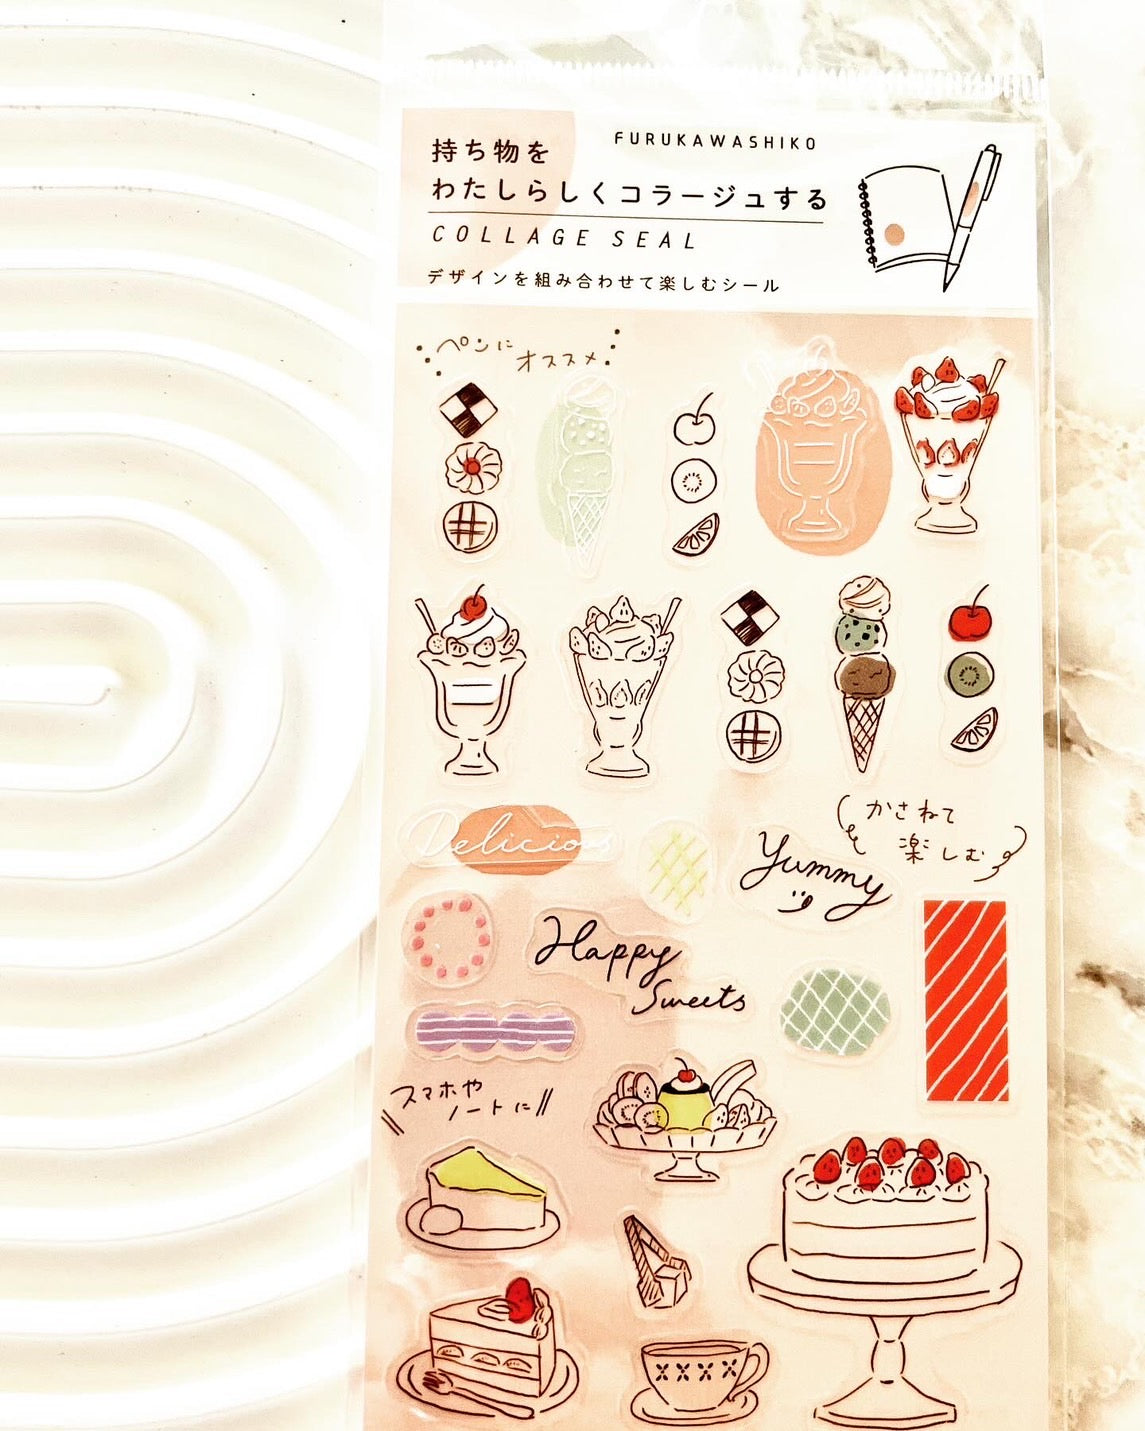 持ち物を
わたしらしくコラージュする
FURUKAWASHIKO
COLLAGE SEAL
デザインを組み合わせて楽しむシール
ペンに
オススメ
Delicious
Yummy
かさねて
楽しむ
Happy
Sweets
スマホや
ノートに